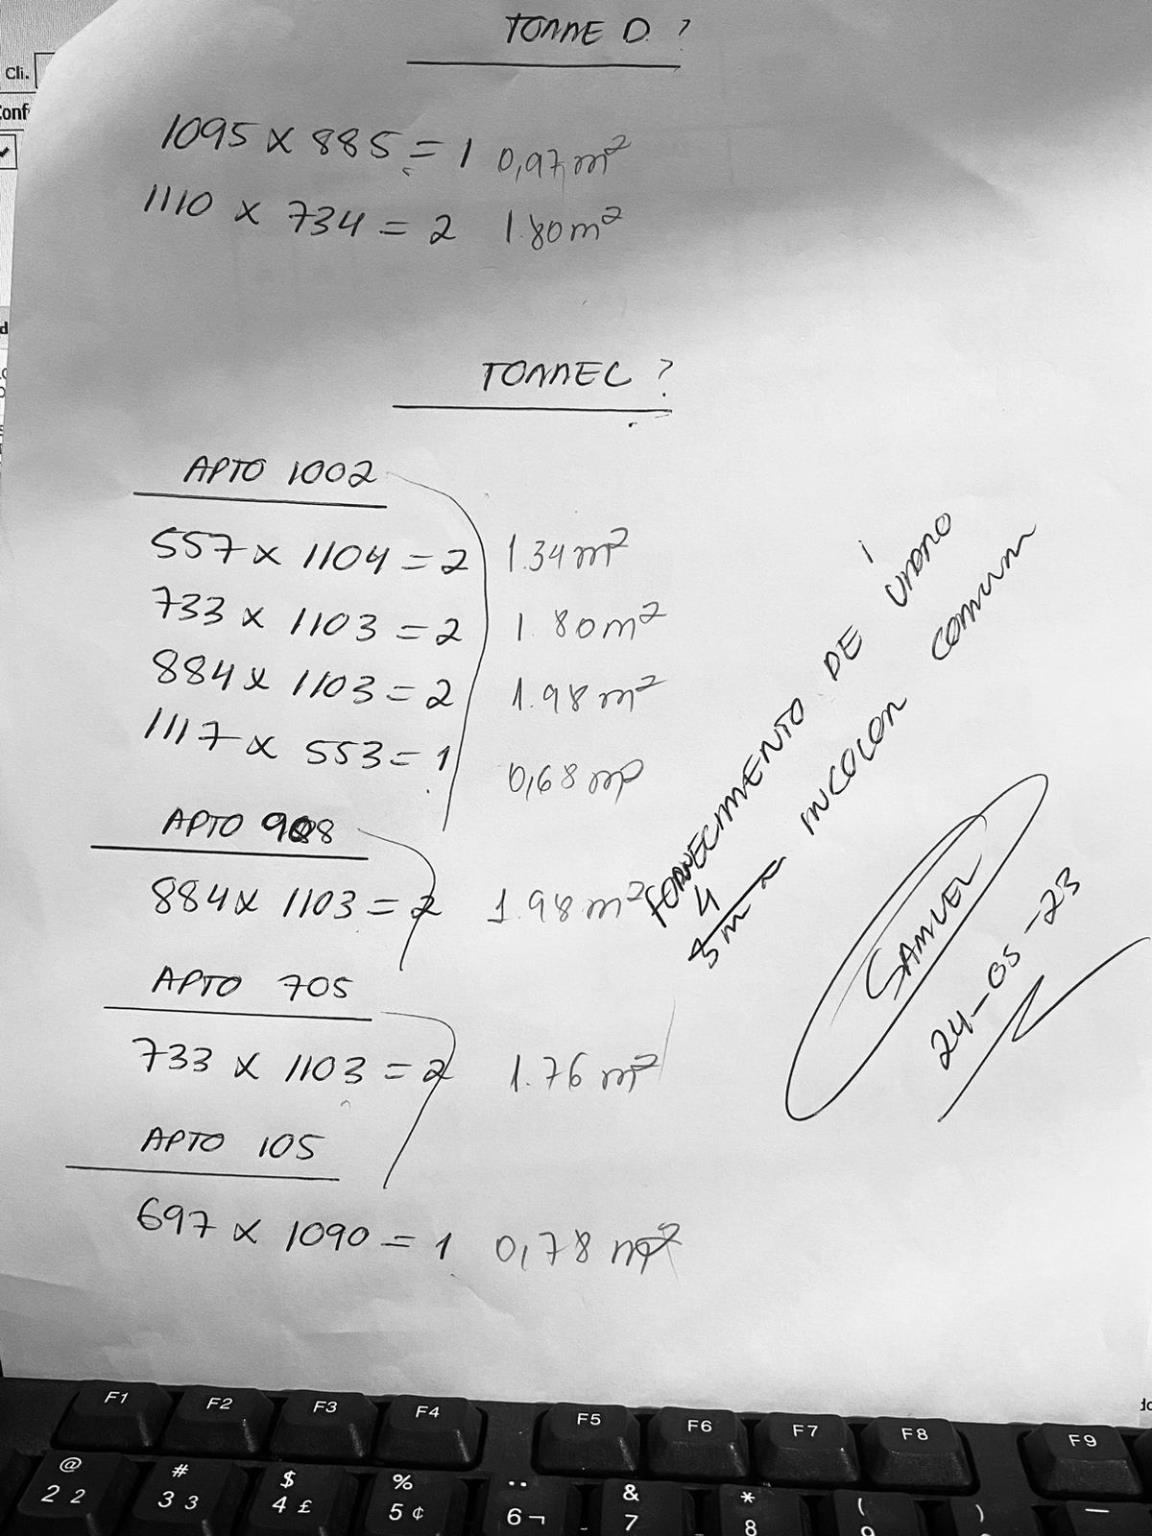 TORRE D. ?
Cli.
Conf
1095 x 885 = 1 0,97 m²
1110 x 734 = 2 1.80 m²
TORRE C ?
APTO 1002
557 x 1104 = 2 1.34 m²
733 x 1103 = 2 1.80 m²
884 x 1103 = 2 1.98 m²
1117 x 553 = 1 0,68 m²
APTO 908
884 x 1103 = 2 1.98 m²
APTO 705
733 x 1103 = 2 1.76 m²
APTO 105
697 x 1090 = 1 0,78 m²
FORNECIMENTO DE VIDRO
4
INCOLOR COMUM
SAMUEL
24-05-23
F1 F2 F3 F4 F5 F6 F7 F8 F9
@ # $ % ¨ & * ( ) —
2 2 3 3 4 £ 5 ¢ 6 ¬ 7 8 9